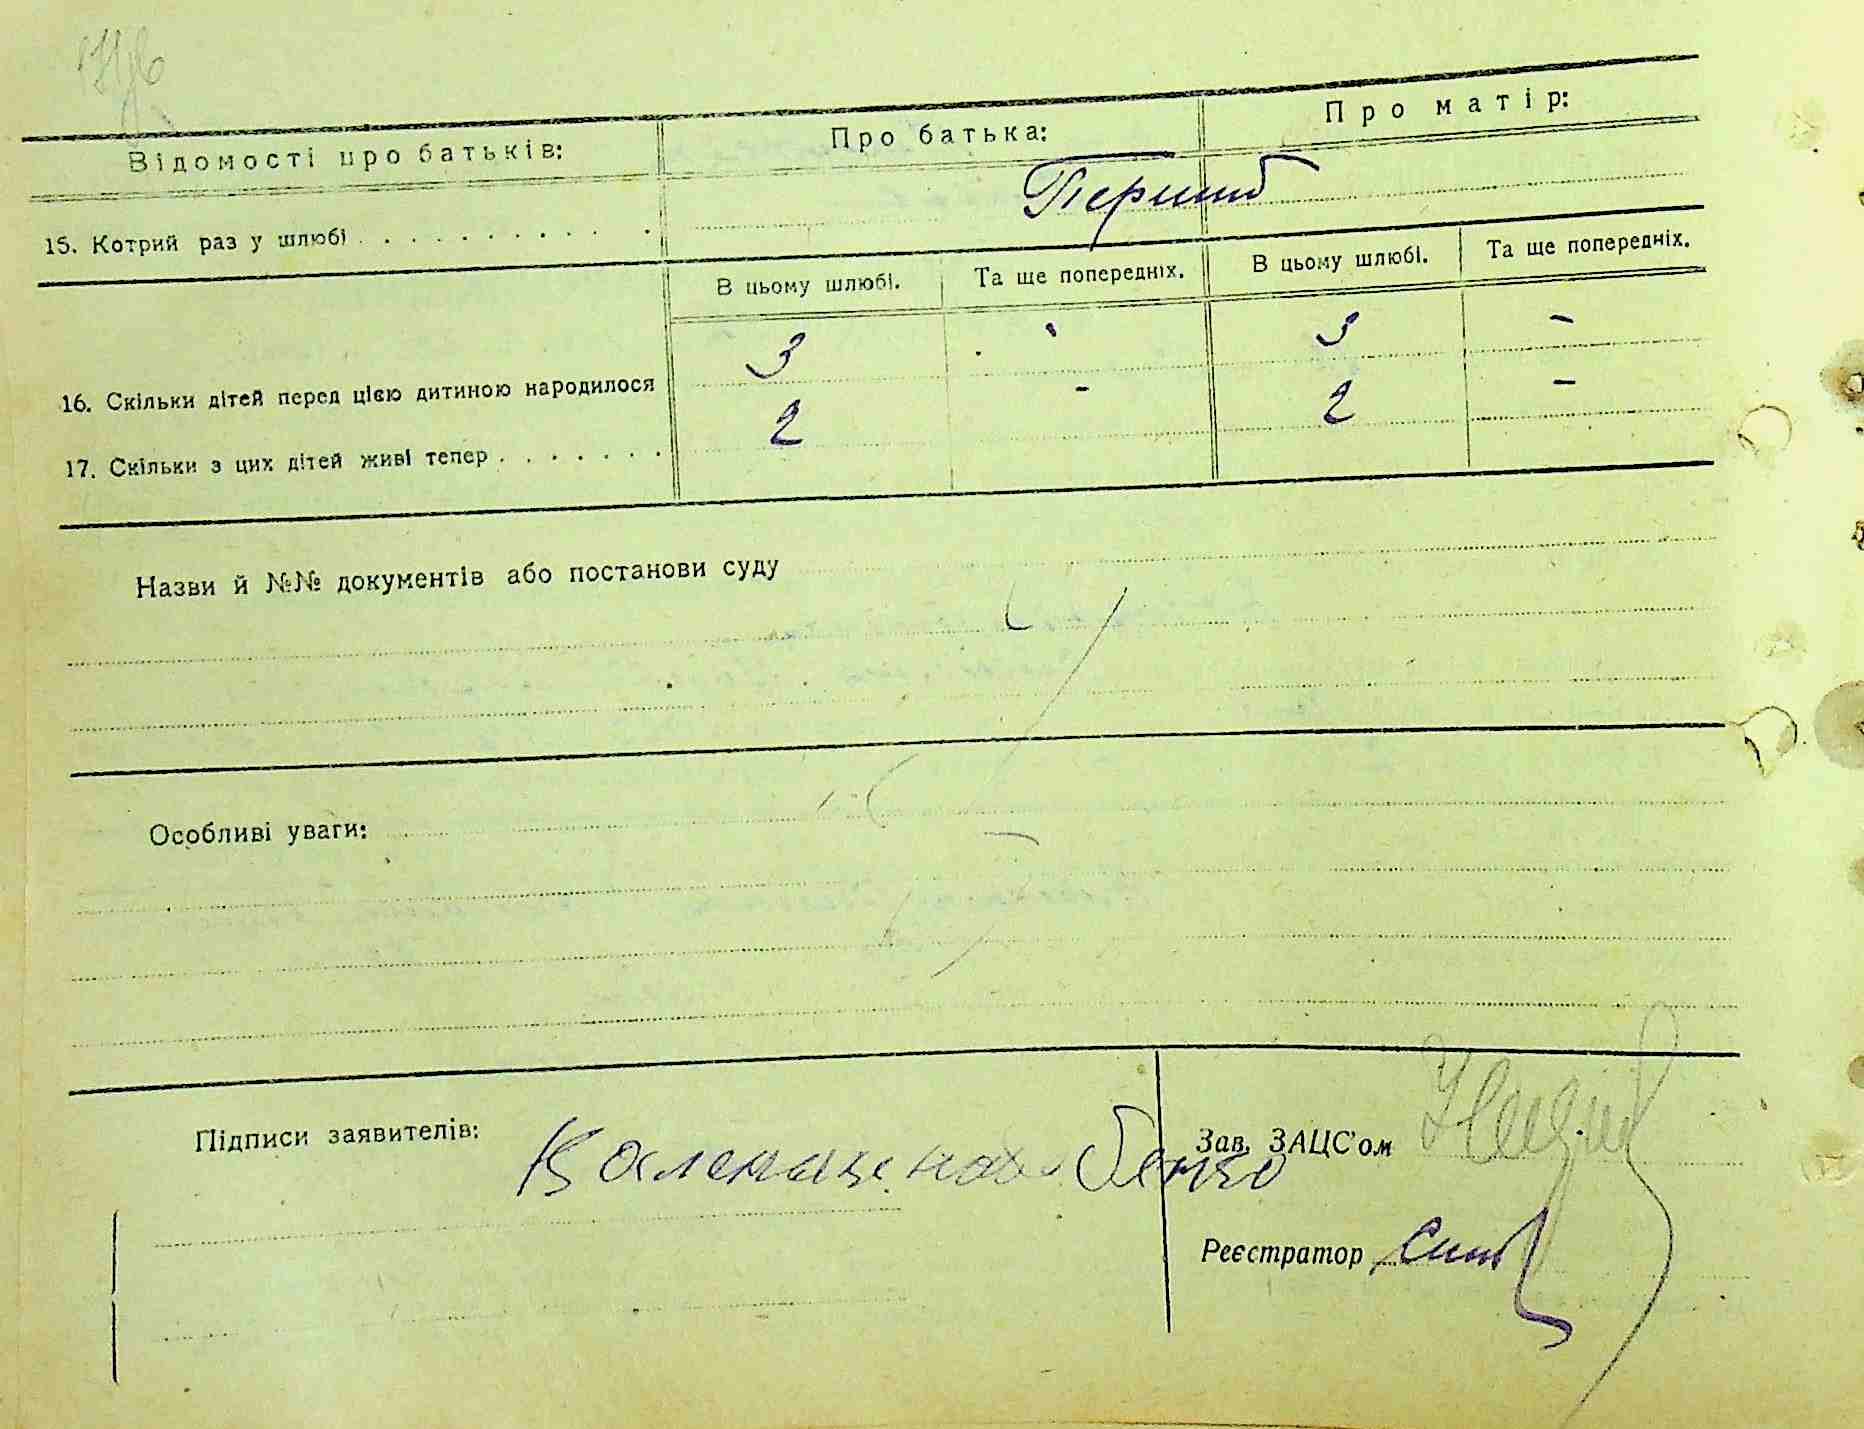 Відомості про батьків:
Про батька:
Про матір:
15. Котрий раз у шлюбі . . . . . . . . . . . .
Перший
В цьому шлюбі.
Та ще попередніх.
В цьому шлюбі.
Та ще попередніх.
16. Скільки дітей перед цією дитиною народилося
3
3
-
17. Скільки з цих дітей живі тепер . . . . . . .
2
-
2
-
Назви й №№ документів або постанови суду
Особливі уваги:
Підписи заявителів:
Зав. ЗАЦС'ом
Реєстратор